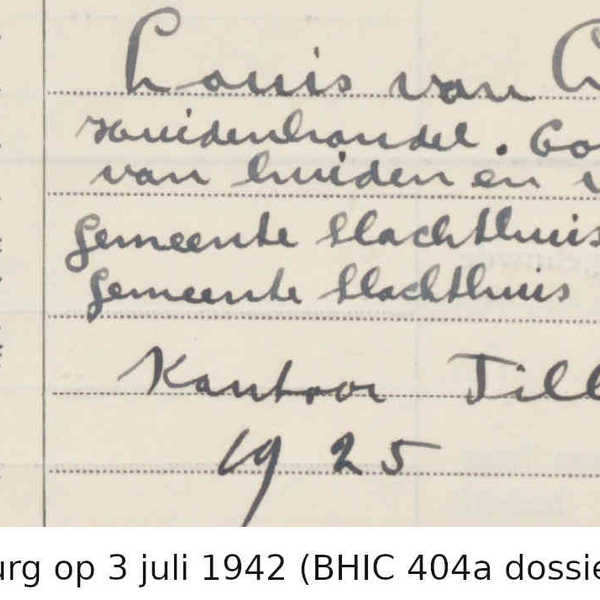 Louis van
Huidenhandel. Co
van huiden en
Gemeente Slachthuis
Gemeente Slachthuis
Kantoor Till
1925
urg op 3 juli 1942 (BHIC 404a dossie